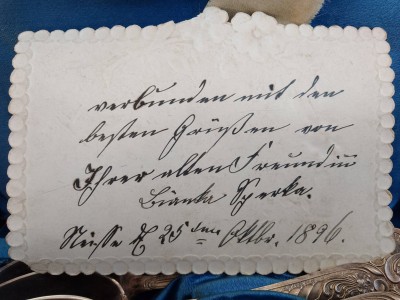 verbunden mit den
besten Grüßen von
Ihrer alten Freundin
Bianka Sperka.
Neisse d. 25ten Oktbr. 1896.